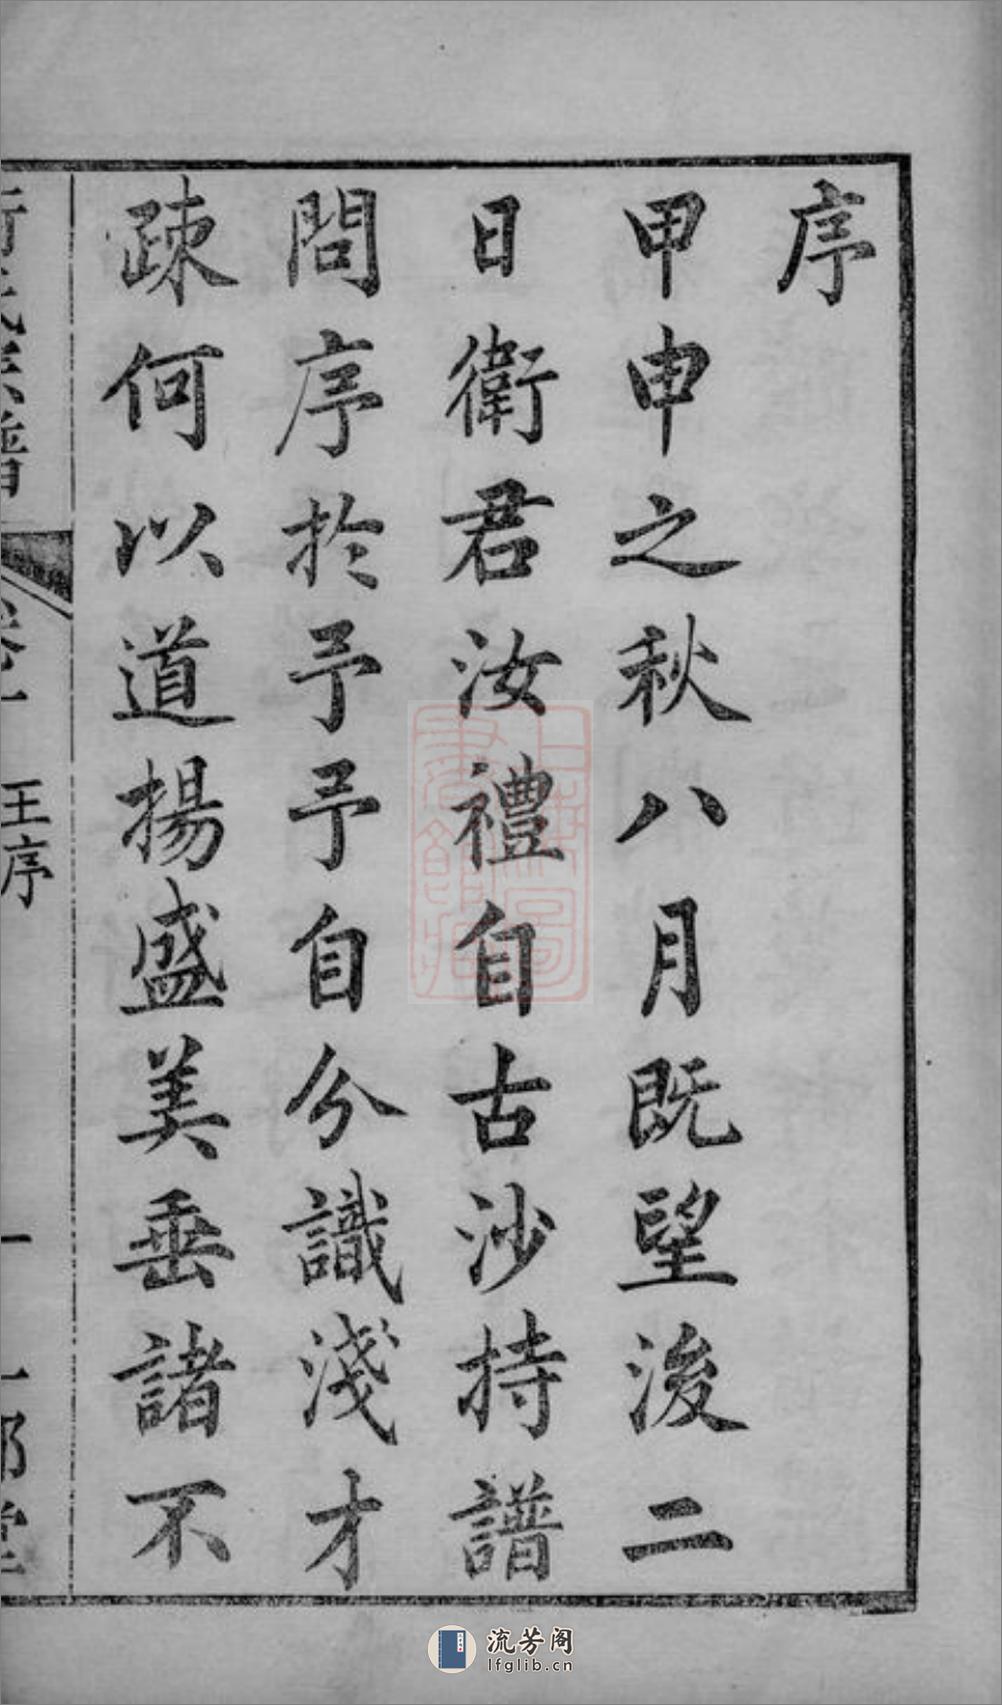 序
甲申之秋八月既望後二
日衛君汝禮自古沙持譜
問序於予予自分識淺才
疎何以道揚盛美垂諸不
王序
一
流芳阁
lfglib.cn